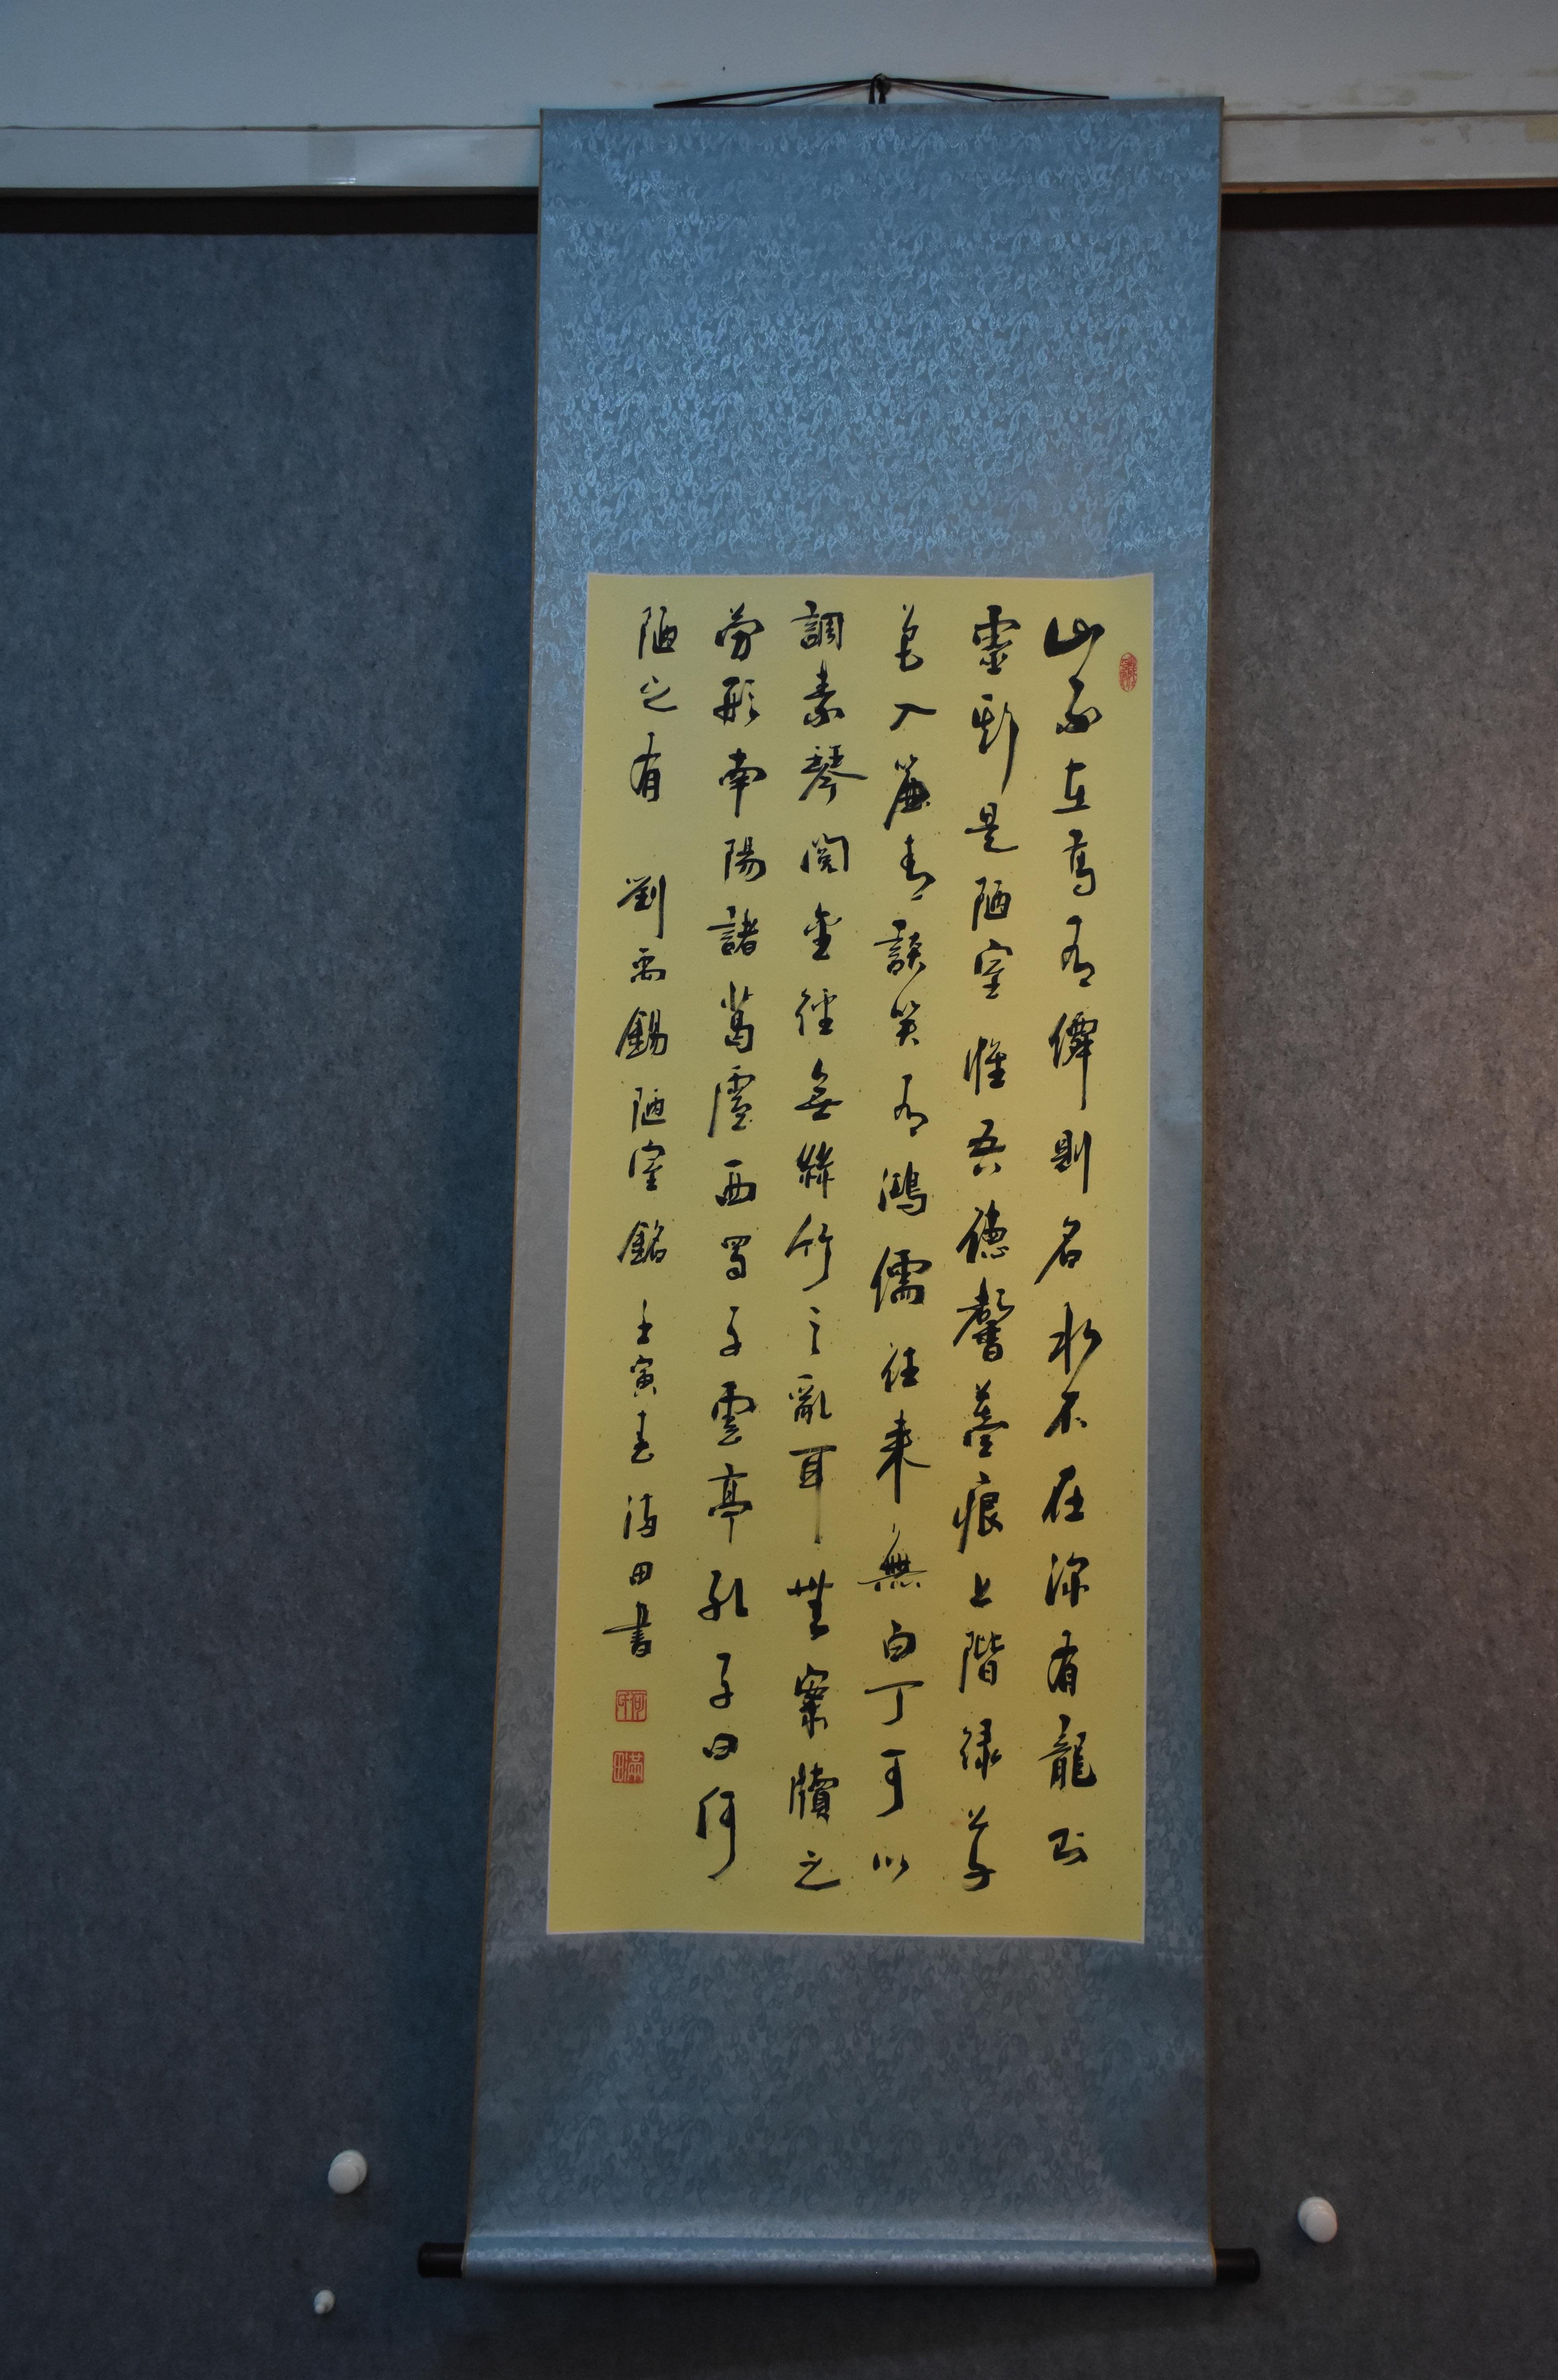 山不在高有僊則名水不在深有龍則
靈斯是陋室惟吾德馨薹痕上階緑草
色入簾青談笑有鴻儒往来無白丁可以
調素琴閲金經無絲竹之亂耳無案牘之
勞形南陽諸葛廬西蜀子雲亭孔子曰何
陋之有 劉禹錫陋室銘 壬寅春 海田書